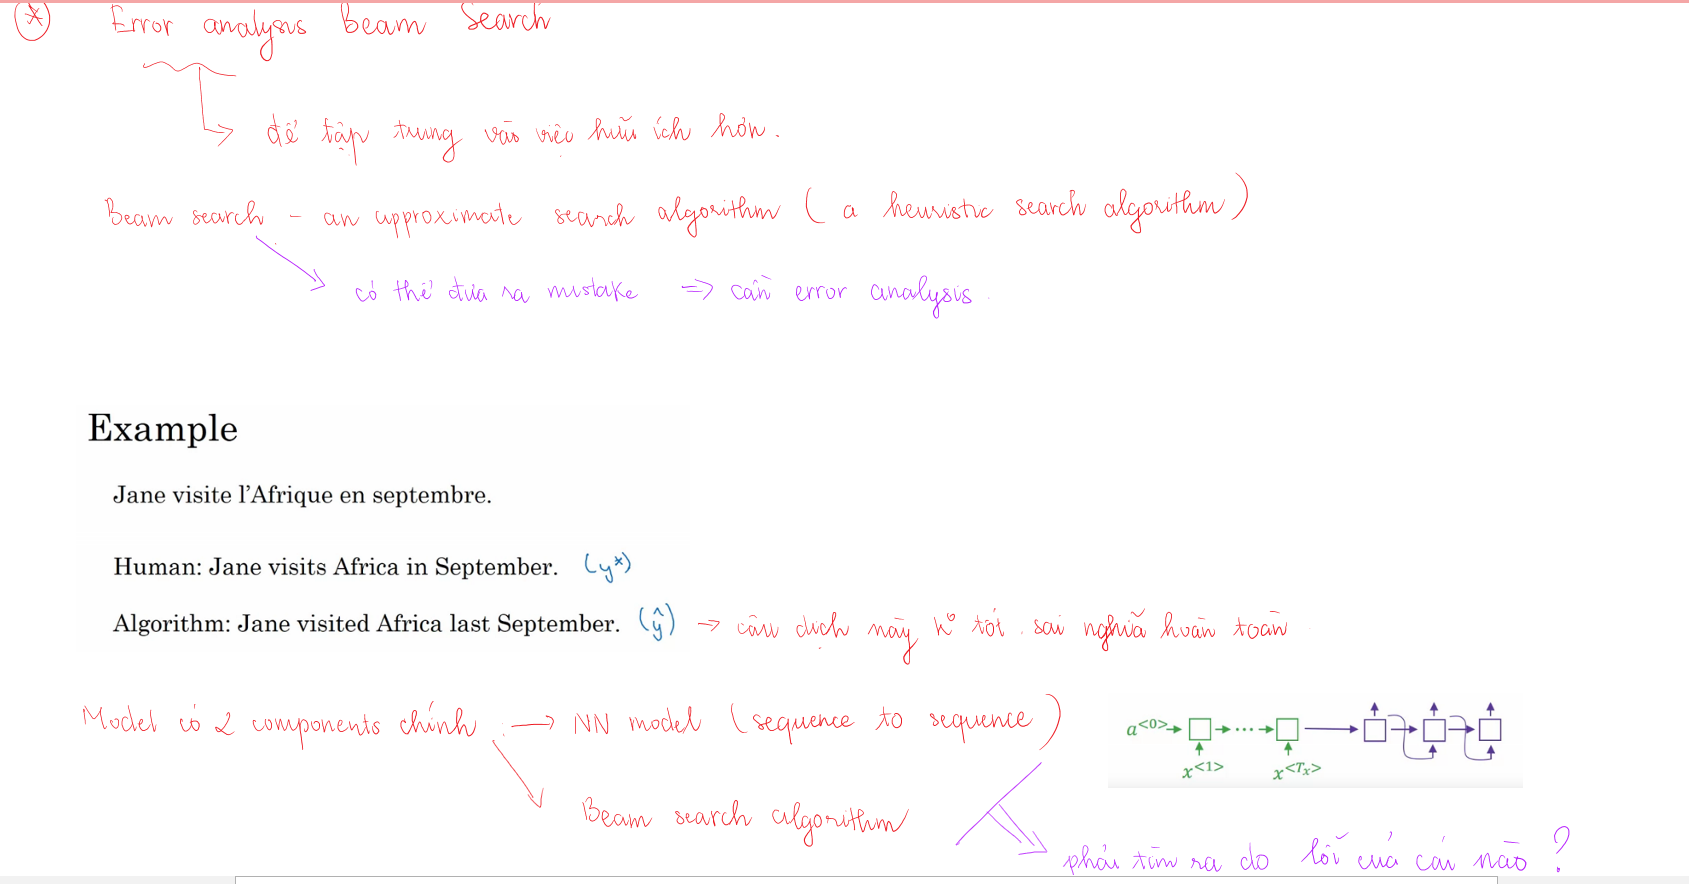 (*) Error analysis Beam Search
để tập trung vào việc hữu ích hơn.
Beam search - an approximate search algorithm (a heuristic search algorithm)
có thể đưa ra mistake => cần error analysis.
Example
Jane visite l'Afrique en septembre.
Human: Jane visits Africa in September. (y*)
Algorithm: Jane visited Africa last September. (ŷ) → câu dịch này k° tốt. sai nghĩa hoàn toàn
Model có 2 components chính : → NN model (sequence to sequence)
a<0> → ... →
x<1> x<Tx>
Beam search algorithm
phải tìm ra do lỗi của cái nào ?